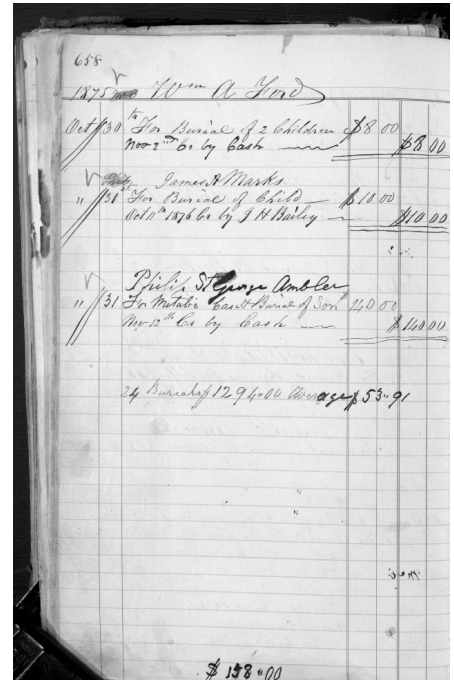 658
1875 Wm A Ford
Oct 30th For Burial of 2 Children $8 00
Nov 2nd Cr by Cash $8 00
James A Marks
" 31 For Burial of Child $10.00
Oct 11th 1876 Cr by J H Bailey $10.00
Philip St George Ambler
" 31 For Metalic Case & Burial of Son 140 00
Nov 12th Cr by Cash $140.00
24 Burials $1294.00 Average $53.91
$158.00